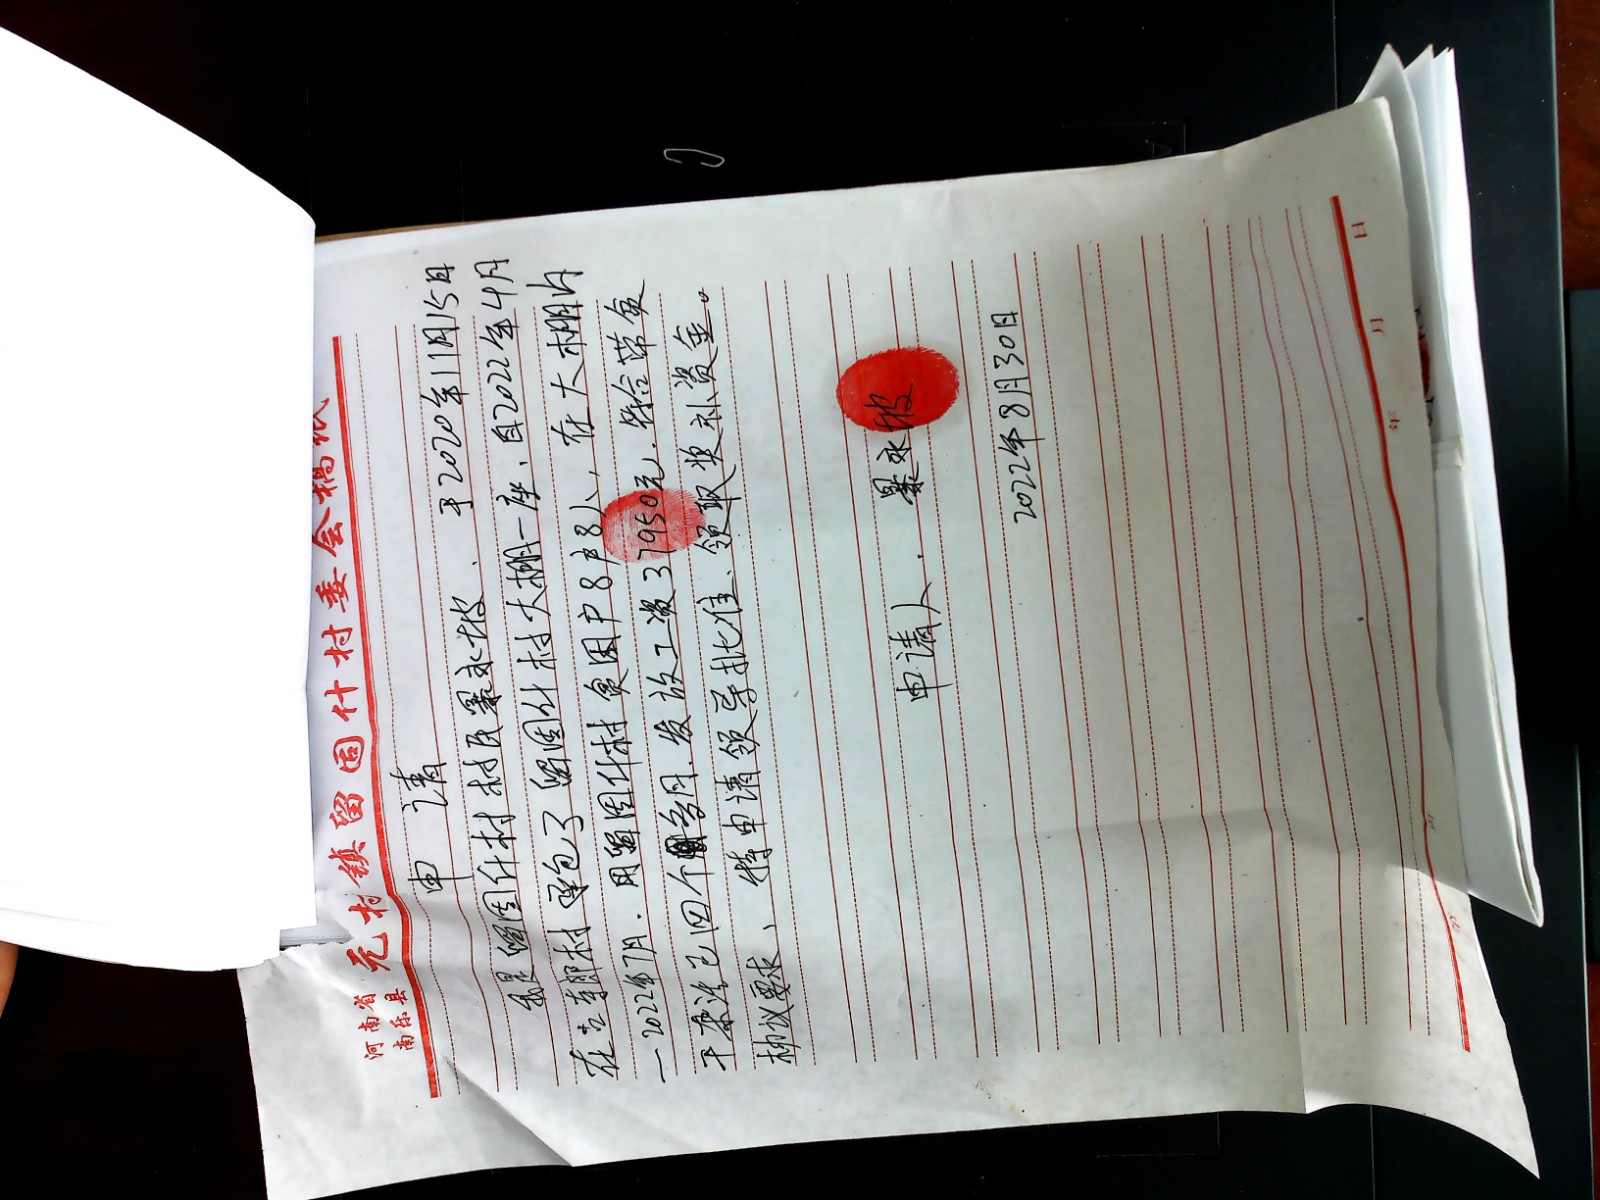 河南省
南乐县
元村镇留固什村委会稿纸
申 请
我是留固什村村民暴永坡、于2020年11月15日
在吉郭村承包了留固什村大棚一座、自2022年4月
—2022年7月.用留固什村贫困户8户8人、在大棚内
干杂活已四个多月.发放工资37950元.符合带贫
协议要求、特申请领导批准、领取奖补资金。
申请人. 暴永坡
2022年8月30日